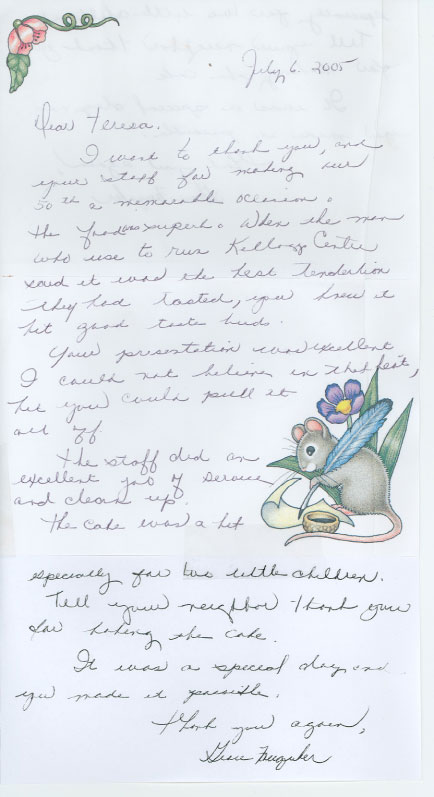 July 6. 2005
Dear Teresa.
I want to thank you, and
your staff for making our
50th a memorable occasion.
The food was superb. When the man
who use to run Kellogg Center
said it was the best tenderloin
they had tasted, you knew it
hit good taste buds.
Your presentation was excellent
I could not believe in that heat,
but you could pull it
all off
The staff did an
excellent job of service
and clean up.
The cake was a hit
especially for two little children.
Tell your neighbor thank you
for baking the cake.
It was a special day and
you made it possible.
Thank you again,